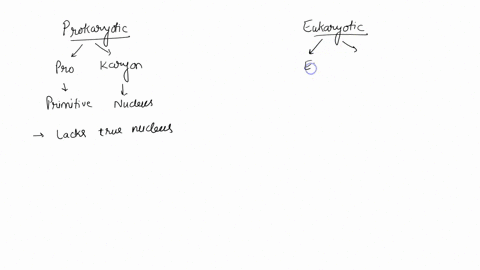 Prokaryotic
Pro Karyon
Primitive Nucleus
→ Lacks true nucleus
Eukaryotic
E